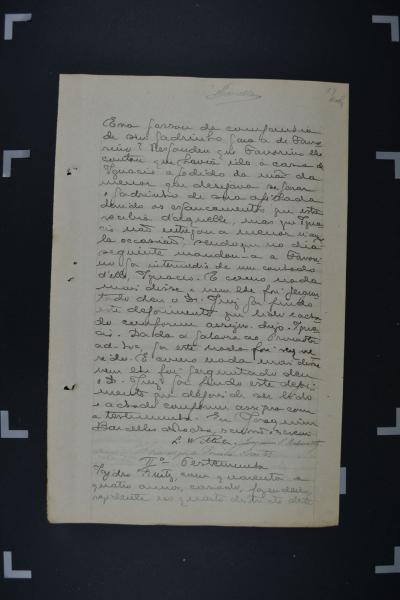 Ema passou de companhia
de seu padrinho para a de Pavo
rino? Respondeu que Pavorino lhe
contou que havia ido a casa de
Ignacio a pedido da mãe da
menor que desejava separar
o padrinho de sua afilhada
devido os espancamentos que esta
recebia d'aquelle, mas que Igna
cio não entregou a menor n'aquel
la occasião, sendo que no dia
seguinte mandou-a a Pavori
no por intermedio de um cunhado
d'elle, Ignacio. E como nada
mais disse e nem lhe foi pergun
tado deu o Dr. Juiz por findo
este depoimento que lido e acha
do conforme assigna, digo,
Dada a palavra ao
ad-hoc, por este nada foi reque
rido. E como nada mais disse
nem lhe foi perguntado deu
o Dr. Juiz por findo este depoi
mento que depois de ser lido
e achado conforme assigna com
a testemunha. Eu Joaquim
Barcellos escrivão, escrevi
IIª Testemunha
quarenta e
quatro annos, casado, fazendeiro,
residente no quarto districto deste